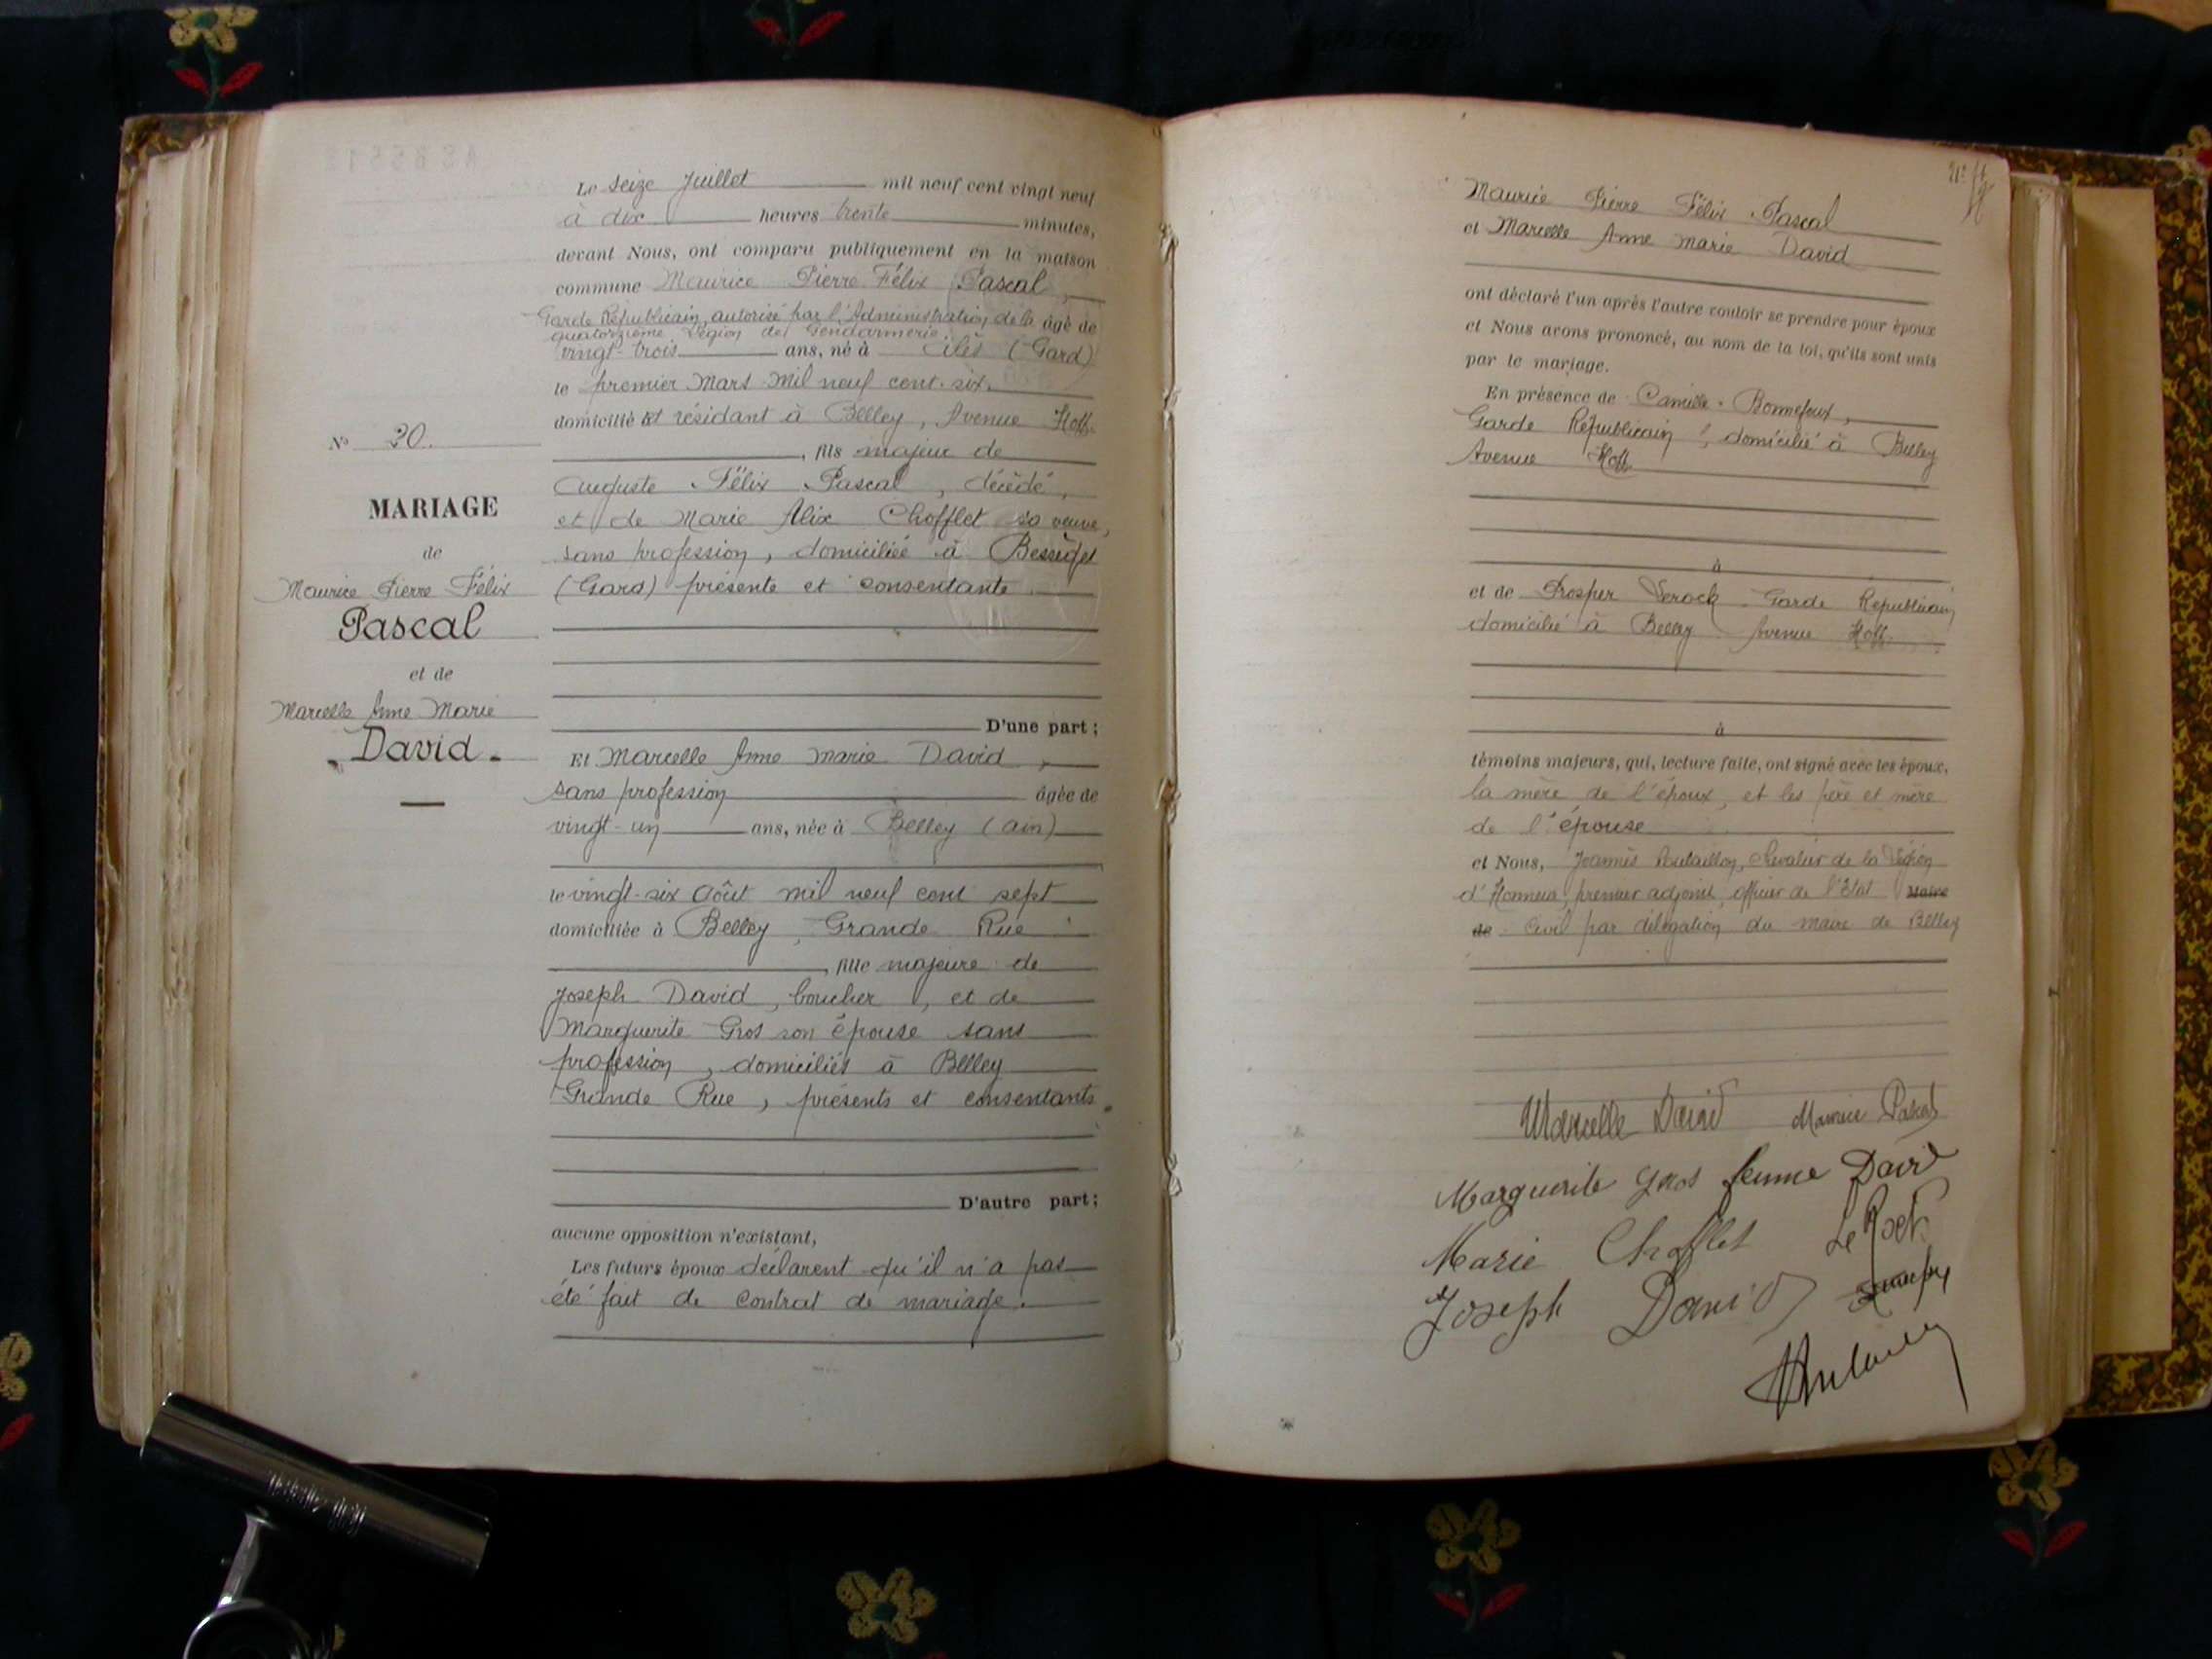 Le seize Juillet mil neuf cent vingt neuf
à dix heures trente minutes,
devant Nous, ont comparu publiquement en la maison
commune Maurice Pierre Félix Pascal,
Garde Républicain, autorisé par l'Administration de la âgé de
quatorzième Légion de Gendarmerie
vingt-trois ans, né à Alès (Gard)
le premier Mars mil neuf cent six
domicilié et résidant à Belley, Avenue Hoff
, fils majeur de
Auguste Félix Pascal, décédé,
et de Marie Alix Chofflet sa veuve,
sans profession, domiciliée à Bessèges
(Gard) présente et consentante
D'une part;
Et Marcelle Anne Marie David,
sans profession âgée de
vingt-un ans, née à Belley (Ain)
le vingt-six Août mil neuf cent sept
domiciliée à Belley, Grande Rue
, fille majeure de
Joseph David, boucher, et de
Marguerite Gros son épouse sans
profession, domiciliés à Belley
Grande Rue, présents et consentants.
D'autre part;
aucune opposition n'existant,
Les futurs époux déclarent qu'il n'a pas
été fait de contrat de mariage.
No 20.
MARIAGE
de
Maurice Pierre Félix
Pascal
et de
Marcelle Anne Marie
David.
Maurice Pierre Félix Pascal
et Marcelle Anne Marie David
ont déclaré l'un après l'autre vouloir se prendre pour époux
et Nous avons prononcé, au nom de la loi, qu'ils sont unis
par le mariage.
En présence de Camille Bonnefoux,
Garde Républicain, domicilié à Belley
Avenue Hoff
à
et de Prosper Lerock Garde Républicain
domicilié à Belley Avenue Hoff.
à
témoins majeurs, qui, lecture faite, ont signé avec les époux,
la mère de l'époux, et les père et mère
de l'épouse
et Nous, Joannès, Chevalier de la Légion
d'Honneur, premier adjoint, officier de l'Etat Maire
de Civil par délégation du maire de Belley
Marcelle David Maurice Pascal
Marguerite Gros femme David
Marie Chofflet
Joseph David